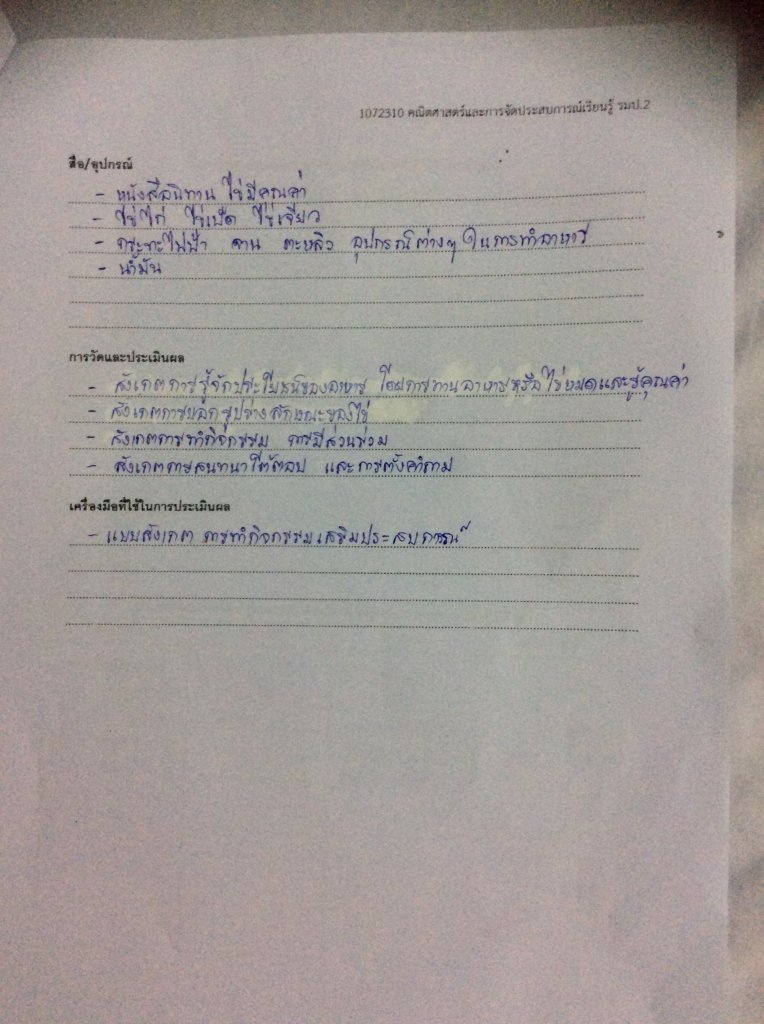 1072310 คณิตศาสตร์และการจัดประสบการณ์เรียนรู้ รมป.2
สื่อ/อุปกรณ์
- หนังสือนิทาน ไข่มีคุณค่า
- ไข่ไก่ ไข่เป็ด ไข่เจียว
- กระทะไฟฟ้า จาน ตะหลิว อุปกรณ์ต่างๆ ในการทำอาหาร
- น้ำมัน
การวัดและประเมินผล
- สังเกตการรู้จักประโยชน์ของอาหาร โดยการทานอาหารหรือไข่หมดและรู้คุณค่า
- สังเกตการบอกรูปร่างลักษณะของไข่
- สังเกตการทำกิจกรรม การมีส่วนร่วม
- สังเกตการสนทนาโต้ตอบ และการตั้งคำถาม
เครื่องมือที่ใช้ในการประเมินผล
- แบบสังเกต การทำกิจกรรมเสริมประสบการณ์